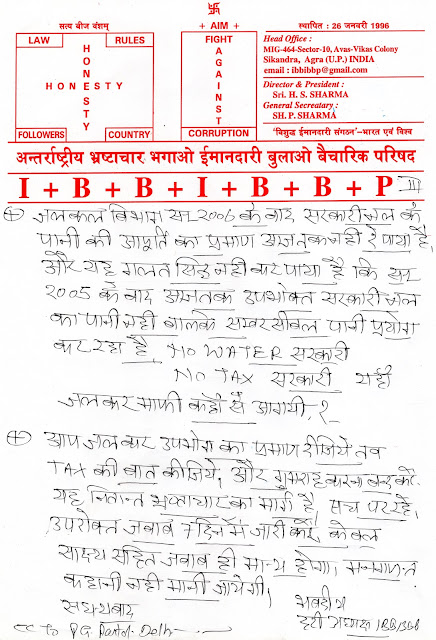 सत्य बीज वंशम्
+ AIM +
स्थापित : 26 जनवरी 1996
LAW
RULES
HONESTY
HONESTY
FOLLOWERS
COUNTRY
FIGHT
AGAINST
CORRUPTION
Head Office :
MIG-464-Sector-10, Avas-Vikas Colony
Sikandra, Agra (U.P.) INDIA
email : ibbibbp@gmail.com
Director & President :
Sri. H. S. SHARMA
General Secreatary :
SH. P. SHARMA
'विशुद्ध ईमानदारी संगठन'-भारत एवं विश्व
अन्तर्राष्ट्रीय भ्रष्टाचार भगाओ ईमानदारी बुलाओ बैचारिक परिषद
I + B + B + I + B + B + P III
जलकल विभाग सन 2006 के बाद सरकारी जल के
पानी की आपूर्ति का प्रमाण आजतक नहीं दे पाया है,
और यह गलत सिद्ध नहीं कर पाया है कि सन
2005 के बाद आजतक उपभोक्त सरकारी जल
का पानी नहीं बल्कि सम्बरसीबल पानी प्रयोग
कर रहा है, NO WATER सरकारी
NO TAX सरकारी यहाँ
जलकर माफी कहाँ से आगयी,?
आप जलकर उपभोग का प्रमाण दीजिये तब
TAX की बात कीजिये, और गुमराह करना बन्द करें
यह नितान्त भ्रष्टाचार का मार्ग है, सच पर रहें,
उपरोक्त जबाब 7 दिन में जारी करें, केवल
साक्ष्य सहित जबाब ही मान्य होगा,
कहानी नहीं मानी जायेगी,
सधन्यबाद
भवदीय
IBBIBBP
CC To PG Portal- Delhi